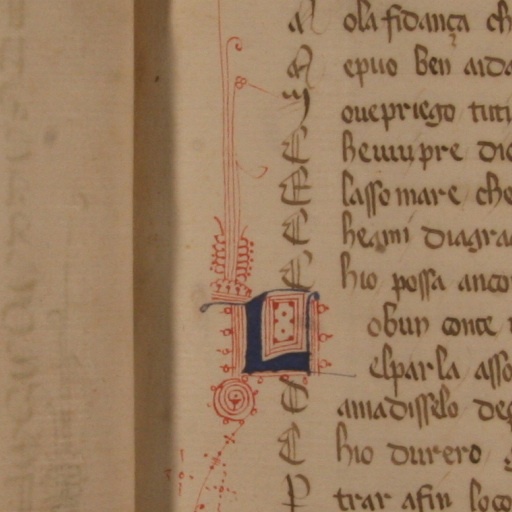 N ola fidança ch
N epuo ben aida
oue priego tuti
C he uiu pre die
E lasso mare che
C heami diagra
C hio possa anco
L obun conte
elparla asso
C ama disselo deg
C hio durero
P trar afin loco